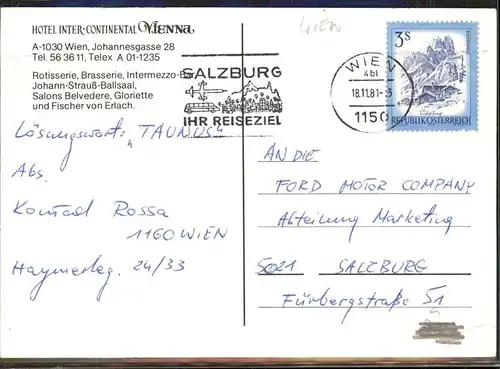 HOTEL INTER-CONTINENTAL VIENNA
A-1030 Wien, Johannesgasse 28
Tel. 56 36 11, Telex A 01-1235
Rotisserie, Brasserie, Intermezzo-B
Johann-Strauß-Ballsaal,
Salons Belvedere, Gloriette
und Fischer von Erlach.
WIEN
SALZBURG
IHR REISEZIEL
WIEN
4b1
18.11.81-
1150
3S
REPUBLIK ÖSTERREICH
Lösungswort: "TAUNUS"
Abs.
Konrad Rossa
1160 WIEN
Haymerleg. 24/33
AN DIE
FORD MOTOR COMPANY
Abteilung Marketing
5021 SALZBURG
Fürbergstraße 51